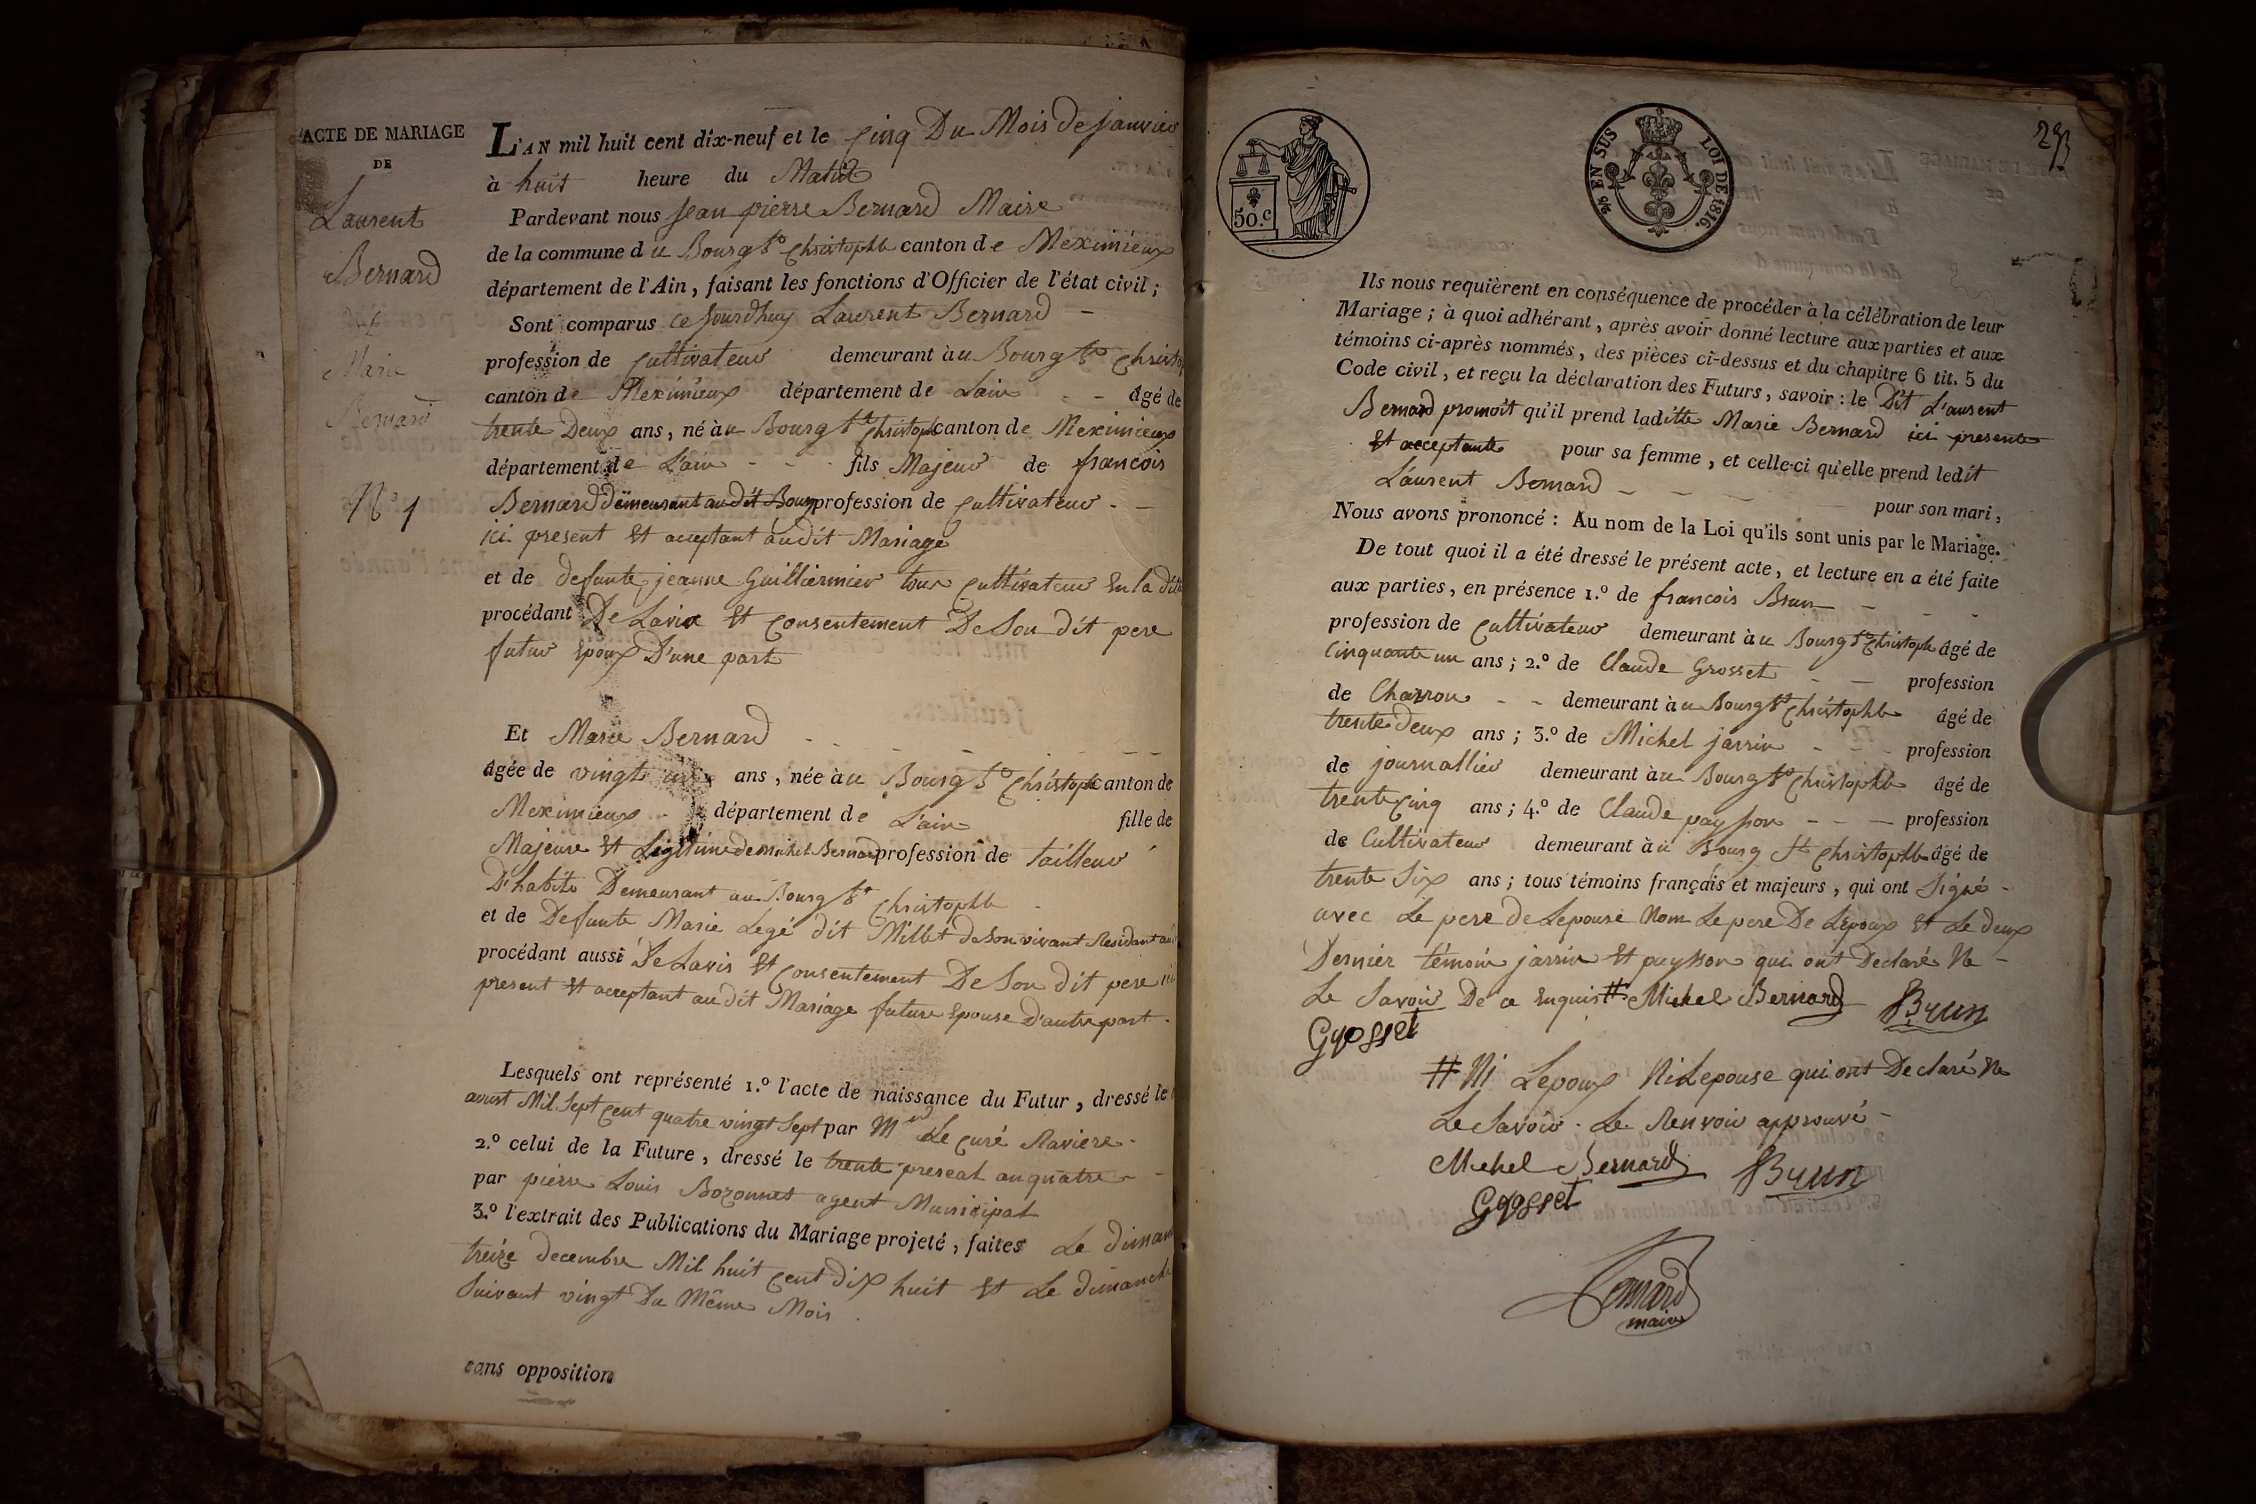 ACTE DE MARIAGE
DE
Laurent
Bernard
et
Marie
Bernard
N.° 1
L'AN mil huit cent dix-neuf et le cinq Du Mois de janvier
à huit heure du Matin
Pardevant nous Jean pierre Bernard Maire
de la commune du Bourg St Christophe canton de Meximieux
département de l'Ain, faisant les fonctions d'Officier de l'état civil;
Sont comparus ce Jourdhuy Laurent Bernard
profession de cultivateur demeurant àu Bourg St Christo
canton de Meximieux département de Lain âgé de
trente Deux ans, né àu Bourg St Christoph canton de Meximieux
département de L'ain fils Majeur de francois
Bernard demeurant audit Bourg profession de cultivateur
ici present Et acceptant audit Mariage
et de defunte jeanne Guilliermier tous cultivateur En la dit
procédant De Lavis Et consentement De Son dit pere
futur Epoux D'une part
Et Marie Bernard
âgée de vingt ans, née àu Bourg St Christoph canton de
Meximieux département de L'ain fille de
Majeure Et Legitime de Michel Bernard profession de tailleur
D'habits Demeurant au Bourg St Christophe
et de Defunte Marie Legé dit Millet de Son vivant Residant au
procédant aussi De Lavis Et consentement De Son dit pere ici
present Et acceptant audit Mariage future Epouse D'autre part.
Lesquels ont représenté 1.° l'acte de naissance du Futur, dressé le
aoust Mil Sept cent quatre vingt Sept par Mr Le curé Raviere
2.° celui de la Future, dressé le trente prereal an quatre
par pierre Louis Bozonnet agent Municipal
3.° l'extrait des Publications du Mariage projeté, faites Le diman
treize decembre Mil huit cent dix huit Et Le dimanche
Suivant vingt Du Même Mois.
sans opposition
50.c
EN SUS
LOI DE 1816.
293
Ils nous requièrent en conséquence de procéder à la célébration de leur
Mariage; à quoi adhérant, après avoir donné lecture aux parties et aux
témoins ci-après nommés, des pièces ci-dessus et du chapitre 6 tit. 5 du
Code civil, et reçu la déclaration des Futurs, savoir: le Dit L'aurent
Bernard promoit qu'il prend laditte Marie Bernard ici presente
Et acceptante pour sa femme, et celle-ci qu'elle prend ledit
Laurent Bernard pour son mari,
Nous avons prononcé: Au nom de la Loi qu'ils sont unis par le Mariage.
De tout quoi il a été dressé le présent acte, et lecture en a été faite
aux parties, en présence 1.° de francois Brun
profession de cultivateur demeurant àu Bourg St Christoph âgé de
cinquante un ans; 2.° de Claude Grosset profession
de Charron demeurant àu Bourg St Christophe âgé de
trente Deux ans; 3.° de Michel jarrin profession
de journallier demeurant àu Bourg St Christophe âgé de
trente cinq ans; 4.° de Claude paysson profession
de Cultivateur demeurant àu Bourg St Christophe âgé de
trente Six ans; tous témoins français et majeurs, qui ont Signé
avec Le pere de Lepouse Nom Le pere De Lepoux Et Le deux
Dernier témoin jarrin Et paysson qui ont Declaré Ne
Le Savoir De ce Enquis # Michel Bernard Brun
Grosset
# Ni Lepoux Ni Lepouse qui ont Declaré Ne
Le Savoir. Le Renvoi approuvé
Michel Bernard Brun
Grosset
Bernard
maire